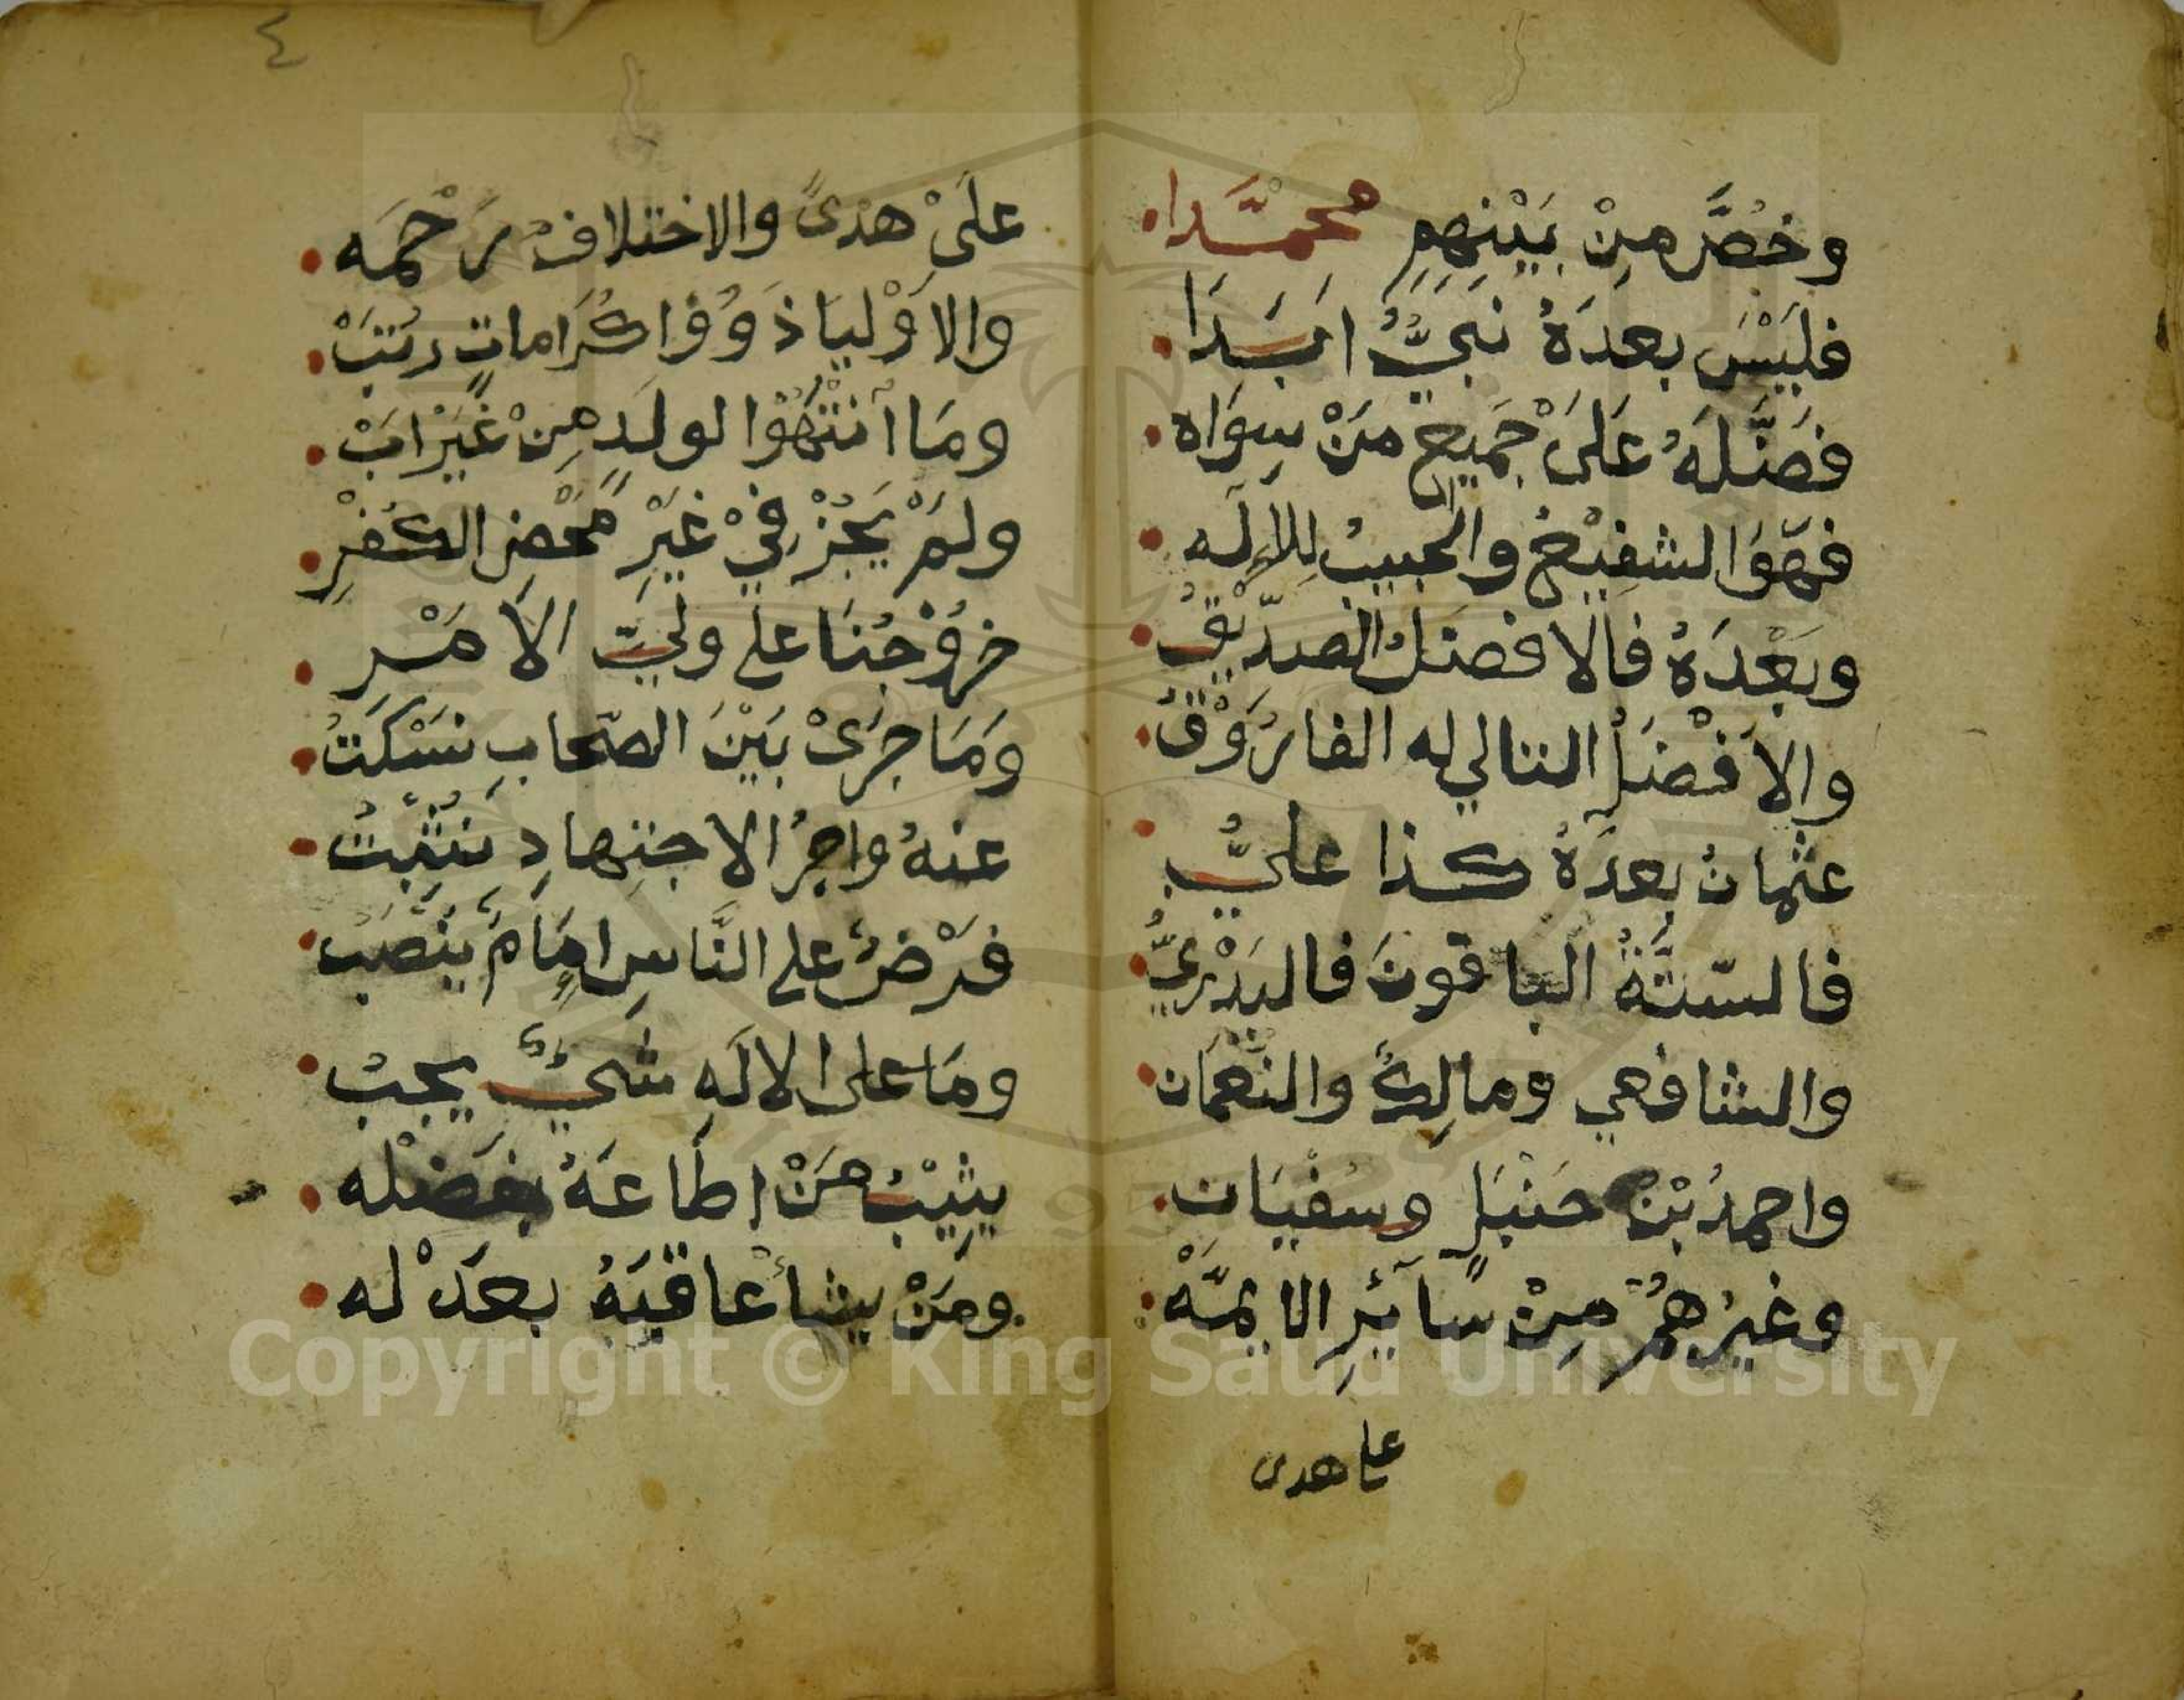 وخُصَّ مِنْ بَيْنِهِمِ مُحمَّدا
فلَيْسَ بعدَهُ نَبيٌّ ابَدَا
فضَّلَهُ عَلىَ جَميعِ مَنْ سِوَاه
فهَوَ الشفِيْعُ والحبيبُ لِلإلَه
وبَعْدَهُ فالافضَلُ الصدِّيْقُ
والافْضَلُ التالي له الفارُوْقُ
عثمانُ بعدَهُ كذا عليُّ
فالسّتَّةُ الباقونَ فالبَدْرِيُّ
والشافعي ومالِكٌ والنعمَان
واحمدُ بْنُ حَنْبَلٍ وسُفْيَان
وغيرُهُمْ مِنْ سَائِرِ الايمَّهْ
على هدى
٤
علىَ هدىً والاختلافُ رَحْمَه
والاوْليَا ذَوُوْا كرَاماتٍ رُتَبْ
ومَا اَنْتَهُوْا لولَدٍ مِنْ غَيْرِ ابْ
ولمْ يَجُزْ فيْ غيَرْ مَحْضِ الكُفْرِ
خرُوْجُنَا على وليِّ الامْرِ
وَمَا جرَىْ بَيْنَ الصّحابِ نسْكتُ
عنهُ واجرُ الاجتِهادِ نثْبِتُ
فرْضٌ على النَّاسِ امَامٌ يُنْصَبُ
ومَا على الالَهِ شيءٌ يجبُ
يثِيْبُ مَنْ اطَاعَهُ بفضْله
ومَنْ يشأْ عاقبَهُ بعدْله
Copyright © King Saud University